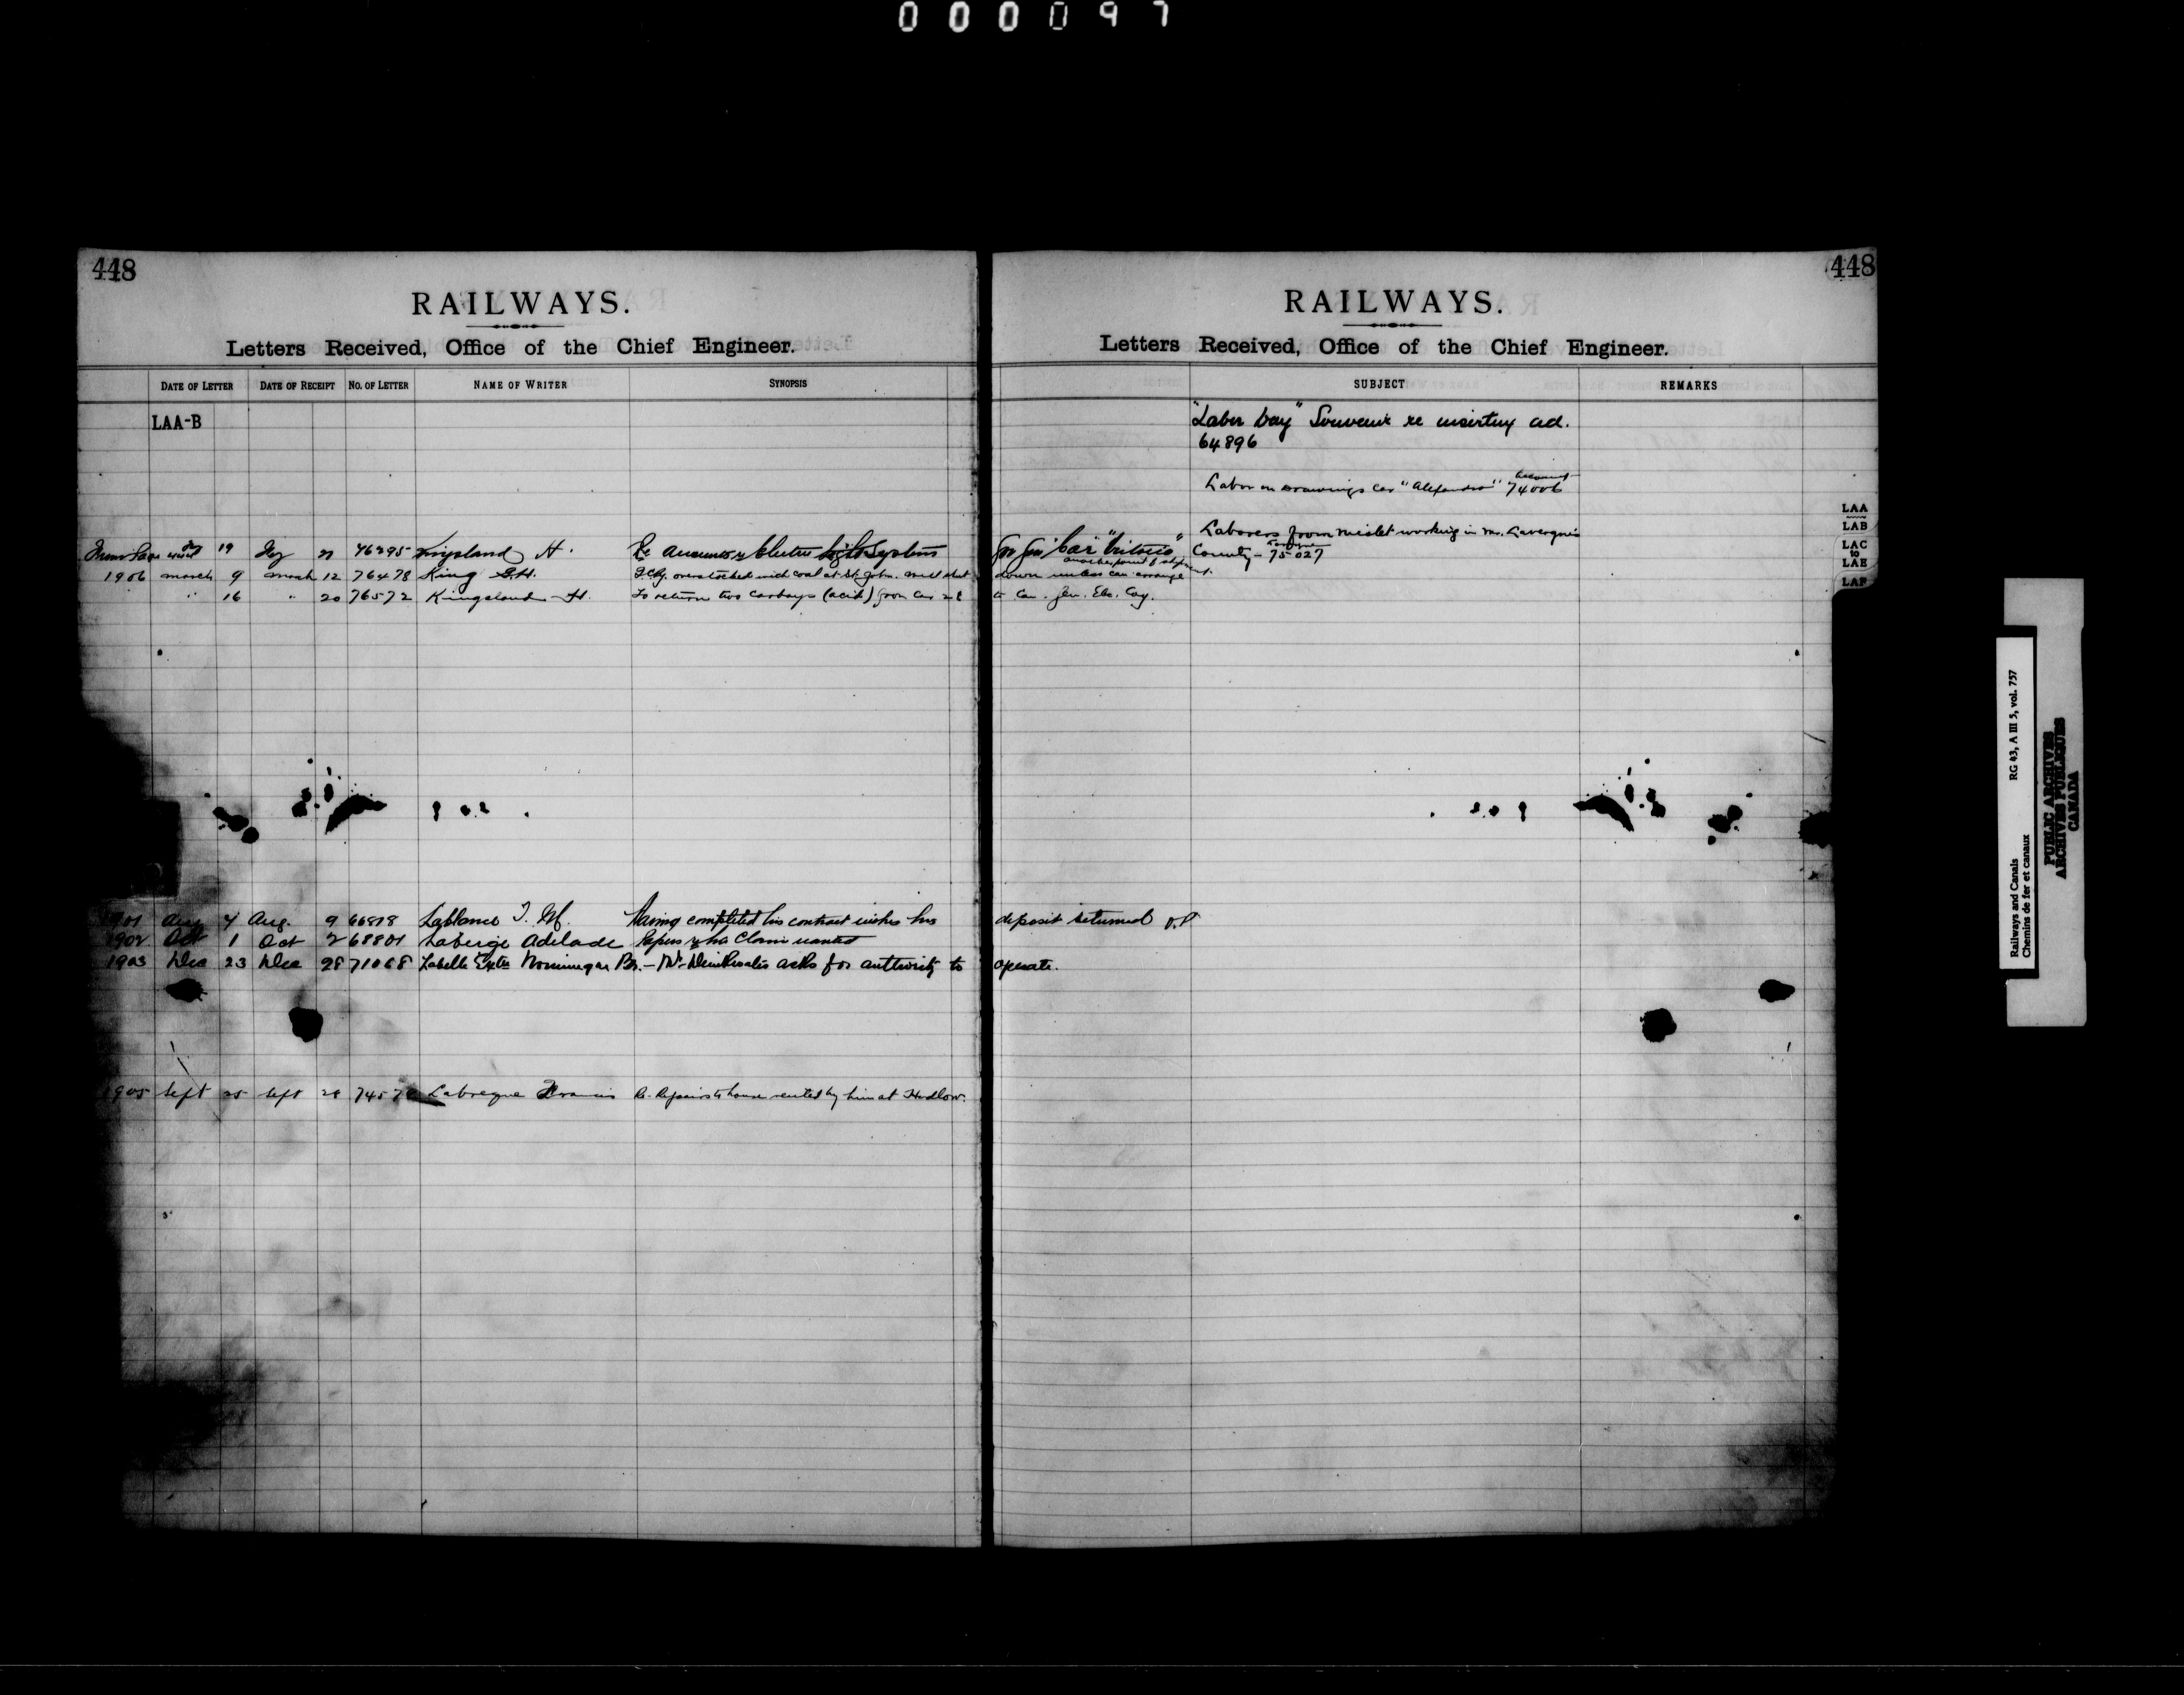 000097
448
RAILWAYS.
Letters Received, Office of the Chief Engineer.
DATE OF LETTER DATE OF RECEIPT NO. OF LETTER NAME OF WRITER SYNOPSIS
LAA-B
19 21 76295 Kingsland H. Re Electric Light System
1906 March 9 March 12 76478 King G.H. I.C.Ry. overstocked with coal at St. John. Will shut
" 16 " 20 76572 Kingsland H. To return two carboys (acid) from Car 28
1901 Aug 7 Aug. 9 66818 Leblanc T. M. Having completed his contract wishes his
1902 Oct 1 Oct 2 68801 Laberge Adelade Papers re his Claim wanted
1903 Dec 23 Dec 28 71068 Labelle Extn Nominegar Br. - asks for authority to
1905 Sept 25 Sept 28 Labreque Francis Re. Repairs to house rented by him at Hadlow.
448
RAILWAYS.
Letters Received, Office of the Chief Engineer.
SUBJECT REMARKS
"Labor Day" Souvenir re inserting ad.
64896
Labor on Drawings Car "Alexandra" account 74006
Laborers from Mislet working in Mr. Lavergne's
County - 75027
Car "Victoria"
another point of shipment.
down unless can arrange
to Can. Gen. Elec. Coy.
deposit returned
operate.
LAA
LAB
LAC
to
LAE
LAF
Railways and Canals RG 43, A III 5, vol. 757
Chemins de fer et canaux
PUBLIC ARCHIVES
ARCHIVES PUBLIQUES
CANADA